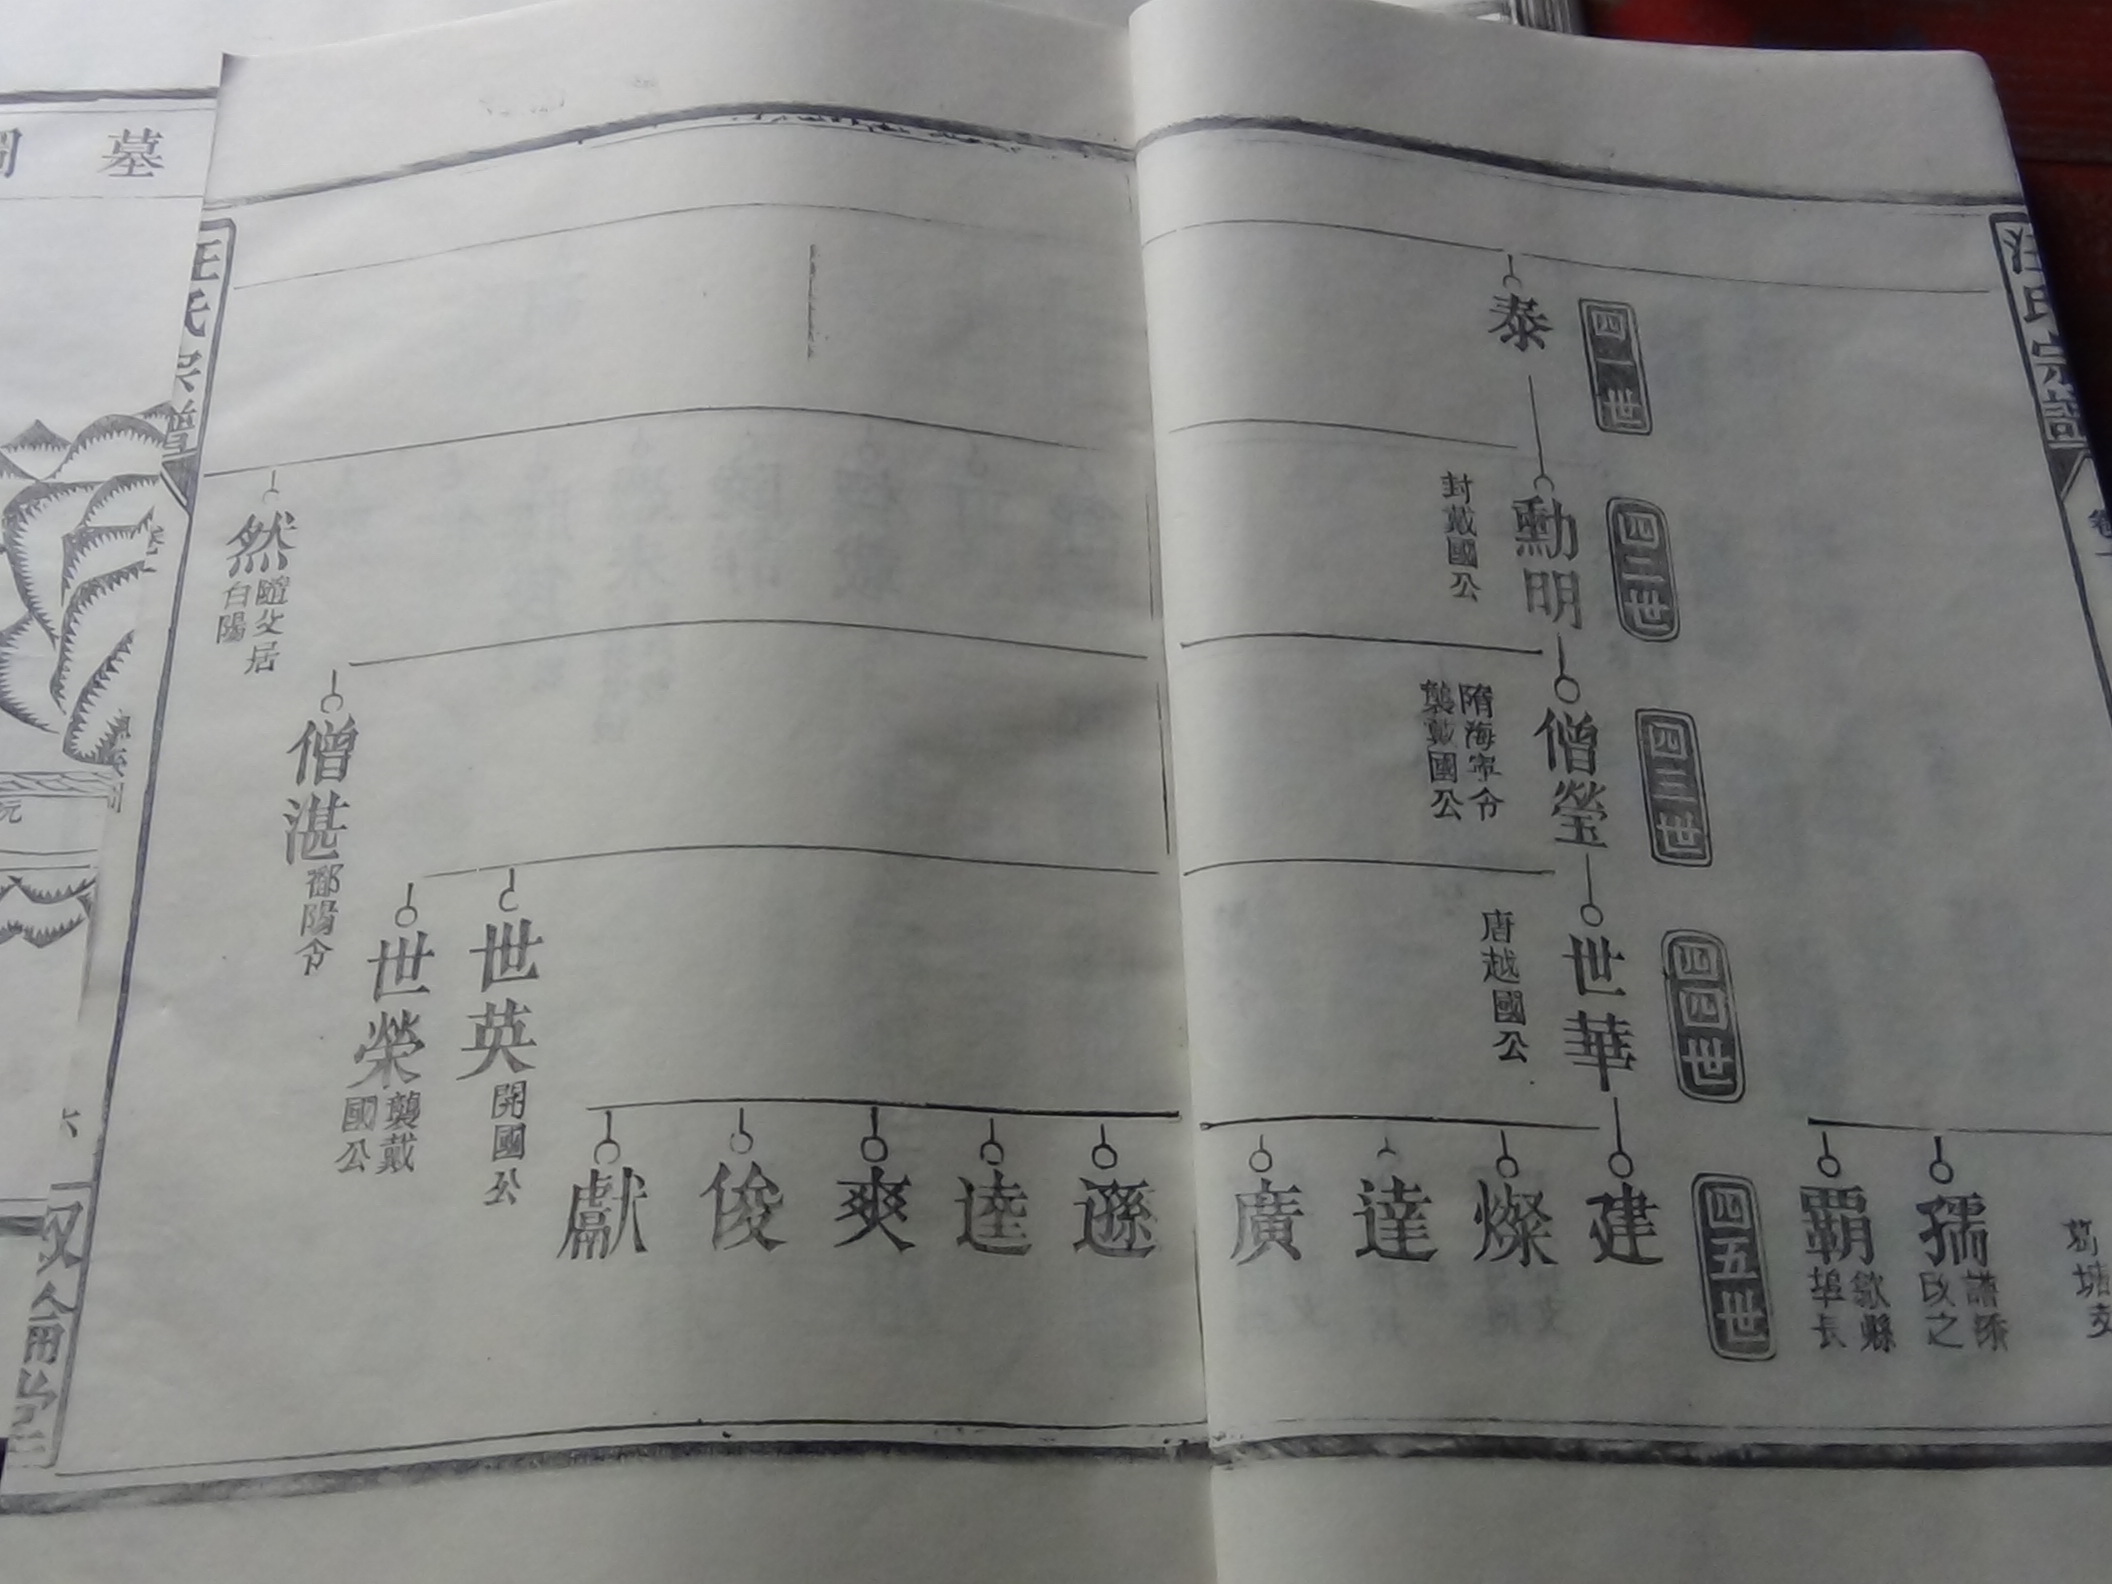 汪氏宗譜
卷一
葛塘支
孺
譜添
改之
霸
歙縣
埠長
四一世
泰
四二世
勳明
封戴國公
然
隨父居
白陽
四三世
僧瑩
隋海寧令
襲戴國公
僧湛
鄱陽令
四四世
世華
唐越國公
世英
開國公
世榮
襲戴
國公
四五世
建
燦
達
廣
遜
逵
爽
俊
獻
汪氏宗譜
六
墓